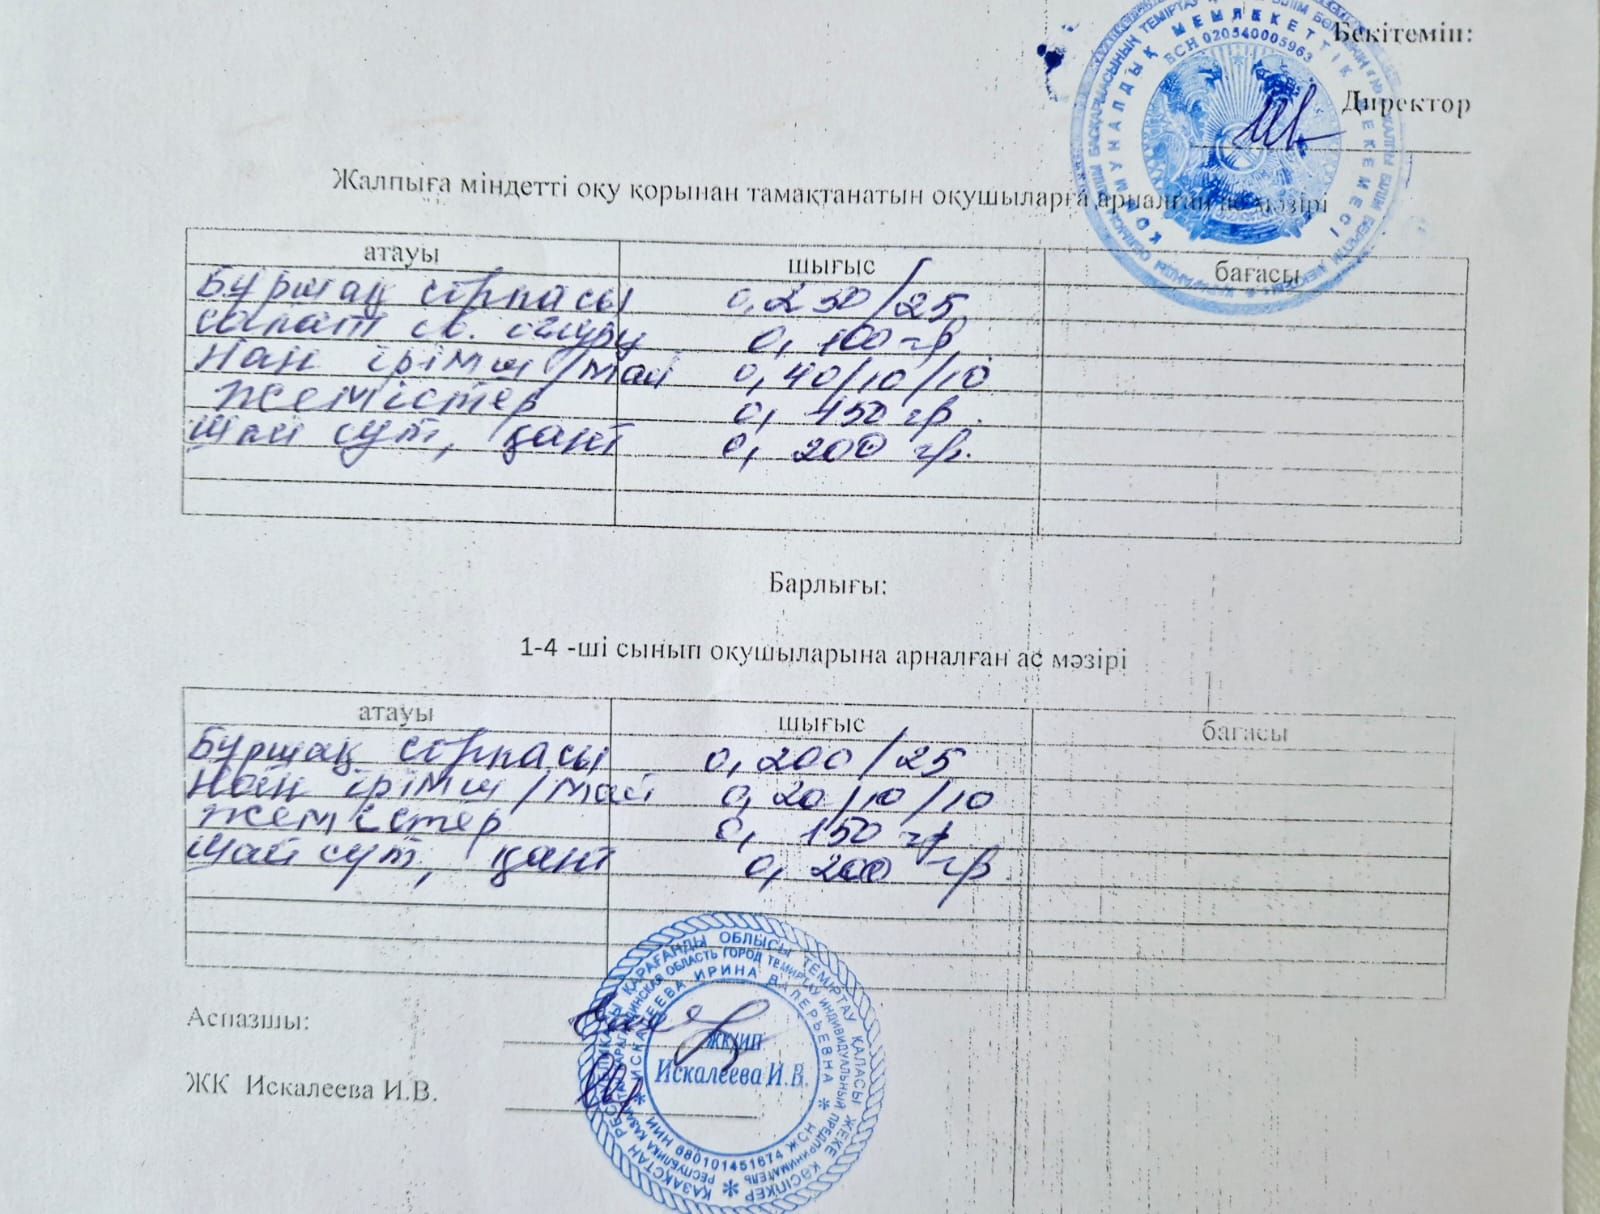 Бекітемін:
Директор
БСН 020540005963
КОММУНАЛДЫҚ МЕМЛЕКЕТТІК МЕКЕМЕСІ
Жалпыға міндетті оқу қорынан тамақтанатын оқушыларға арналған ас мәзірі
атауы шығыс бағасы
Бұршақ сорпасы 0,250/25
салат св. огурц 0, 100 гр
нан ірімш/май 0,40/10/10
жемістер 0, 150 гр.
шай сүт, қант 0, 200 гр.
Барлығы:
1-4 -ші сынып оқушыларына арналған ас мәзірі
атауы шығыс бағасы
Бұршақ сорпасы 0,200/25
нан ірімш/май 0,20/10/10
жемістер 0, 150 гр
шай сүт, қант 0, 200 гр
Аспазшы:
ЖК Искалеева И.В.
ҚАЗАҚСТАН РЕСПУБЛИКАСЫ ҚАРАҒАНДЫ ОБЛЫСЫ ТЕМІРТАУ ҚАЛАСЫ ЖЕКЕ КӘСІПКЕР
РЕСПУБЛИКА КАЗАХСТАН КАРАГАНДИНСКАЯ ОБЛАСТЬ ГОРОД ТЕМИРТАУ ИНДИВИДУАЛЬНЫЙ ПРЕДПРИНИМАТЕЛЬ
ИСКАЛЕЕВА ИРИНА ВАЛЕРЬЕВНА
ЖК/ИП
Искалеева И.В.
ИИН 680101451674 ЖСН